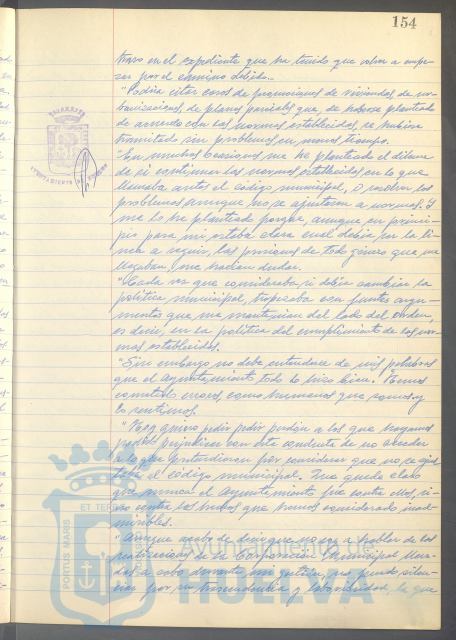 154
traso en el expediente que ha tenido que volver a empe-
zar por el camino debido.-
"Podría citar casos de promociones de viviendas, de ur-
banizaciones, de planes parciales que de haberse planteado
de acuerdo con las normas establecidas, se hubiera
tramitado sin problemas en menos tiempo.
"En muchas ocasiones me he planteado el dilema
de si continuar las normas establecidas en lo que
llamaba antes el código municipal, o resolver los
problemas aunque no se ajustaran a normas. Y
me lo he planteado porque, aunque en princi-
pio para mí estaba clara cual debía ser la lí-
nea a seguir, las presiones de todo género que me
llegaban, me hacían dudar.
"Cada vez que consideraba si debía cambiar la
política municipal, tropezaba con fuertes argu-
mentos que me mantenían del lado del orden,
es decir, en la política del cumplimiento de las nor-
mas establecidas.
"Sin embargo no debe entenderse de mis palabras
que el ayuntamiento todo lo hizo bien. Hemos
cometido errores, como humanos que somos y
lo sentimos.
"Hoy quiero pedir perdón a los que hayamos
podido perjudicar con esta conducta de no acceder
a lo que pretendieran por considerar que no se ajus-
taba al código municipal. Que quede claro
que nunca el ayuntamiento fue contra ellos, si-
no contra los hechos que hemos considerado inad-
misibles.
"Aunque acabo de decir que no voy a hablar de las
realizaciones de la Corporación Municipal lleva-
das a cabo durante mi gestión, no puedo silen-
ciar por su trascendencia y laboriosidad, la que
AYUNTAMIENTO DE
PORTUS MARIS
ET TER
Ayuntamiento de
HUELVA